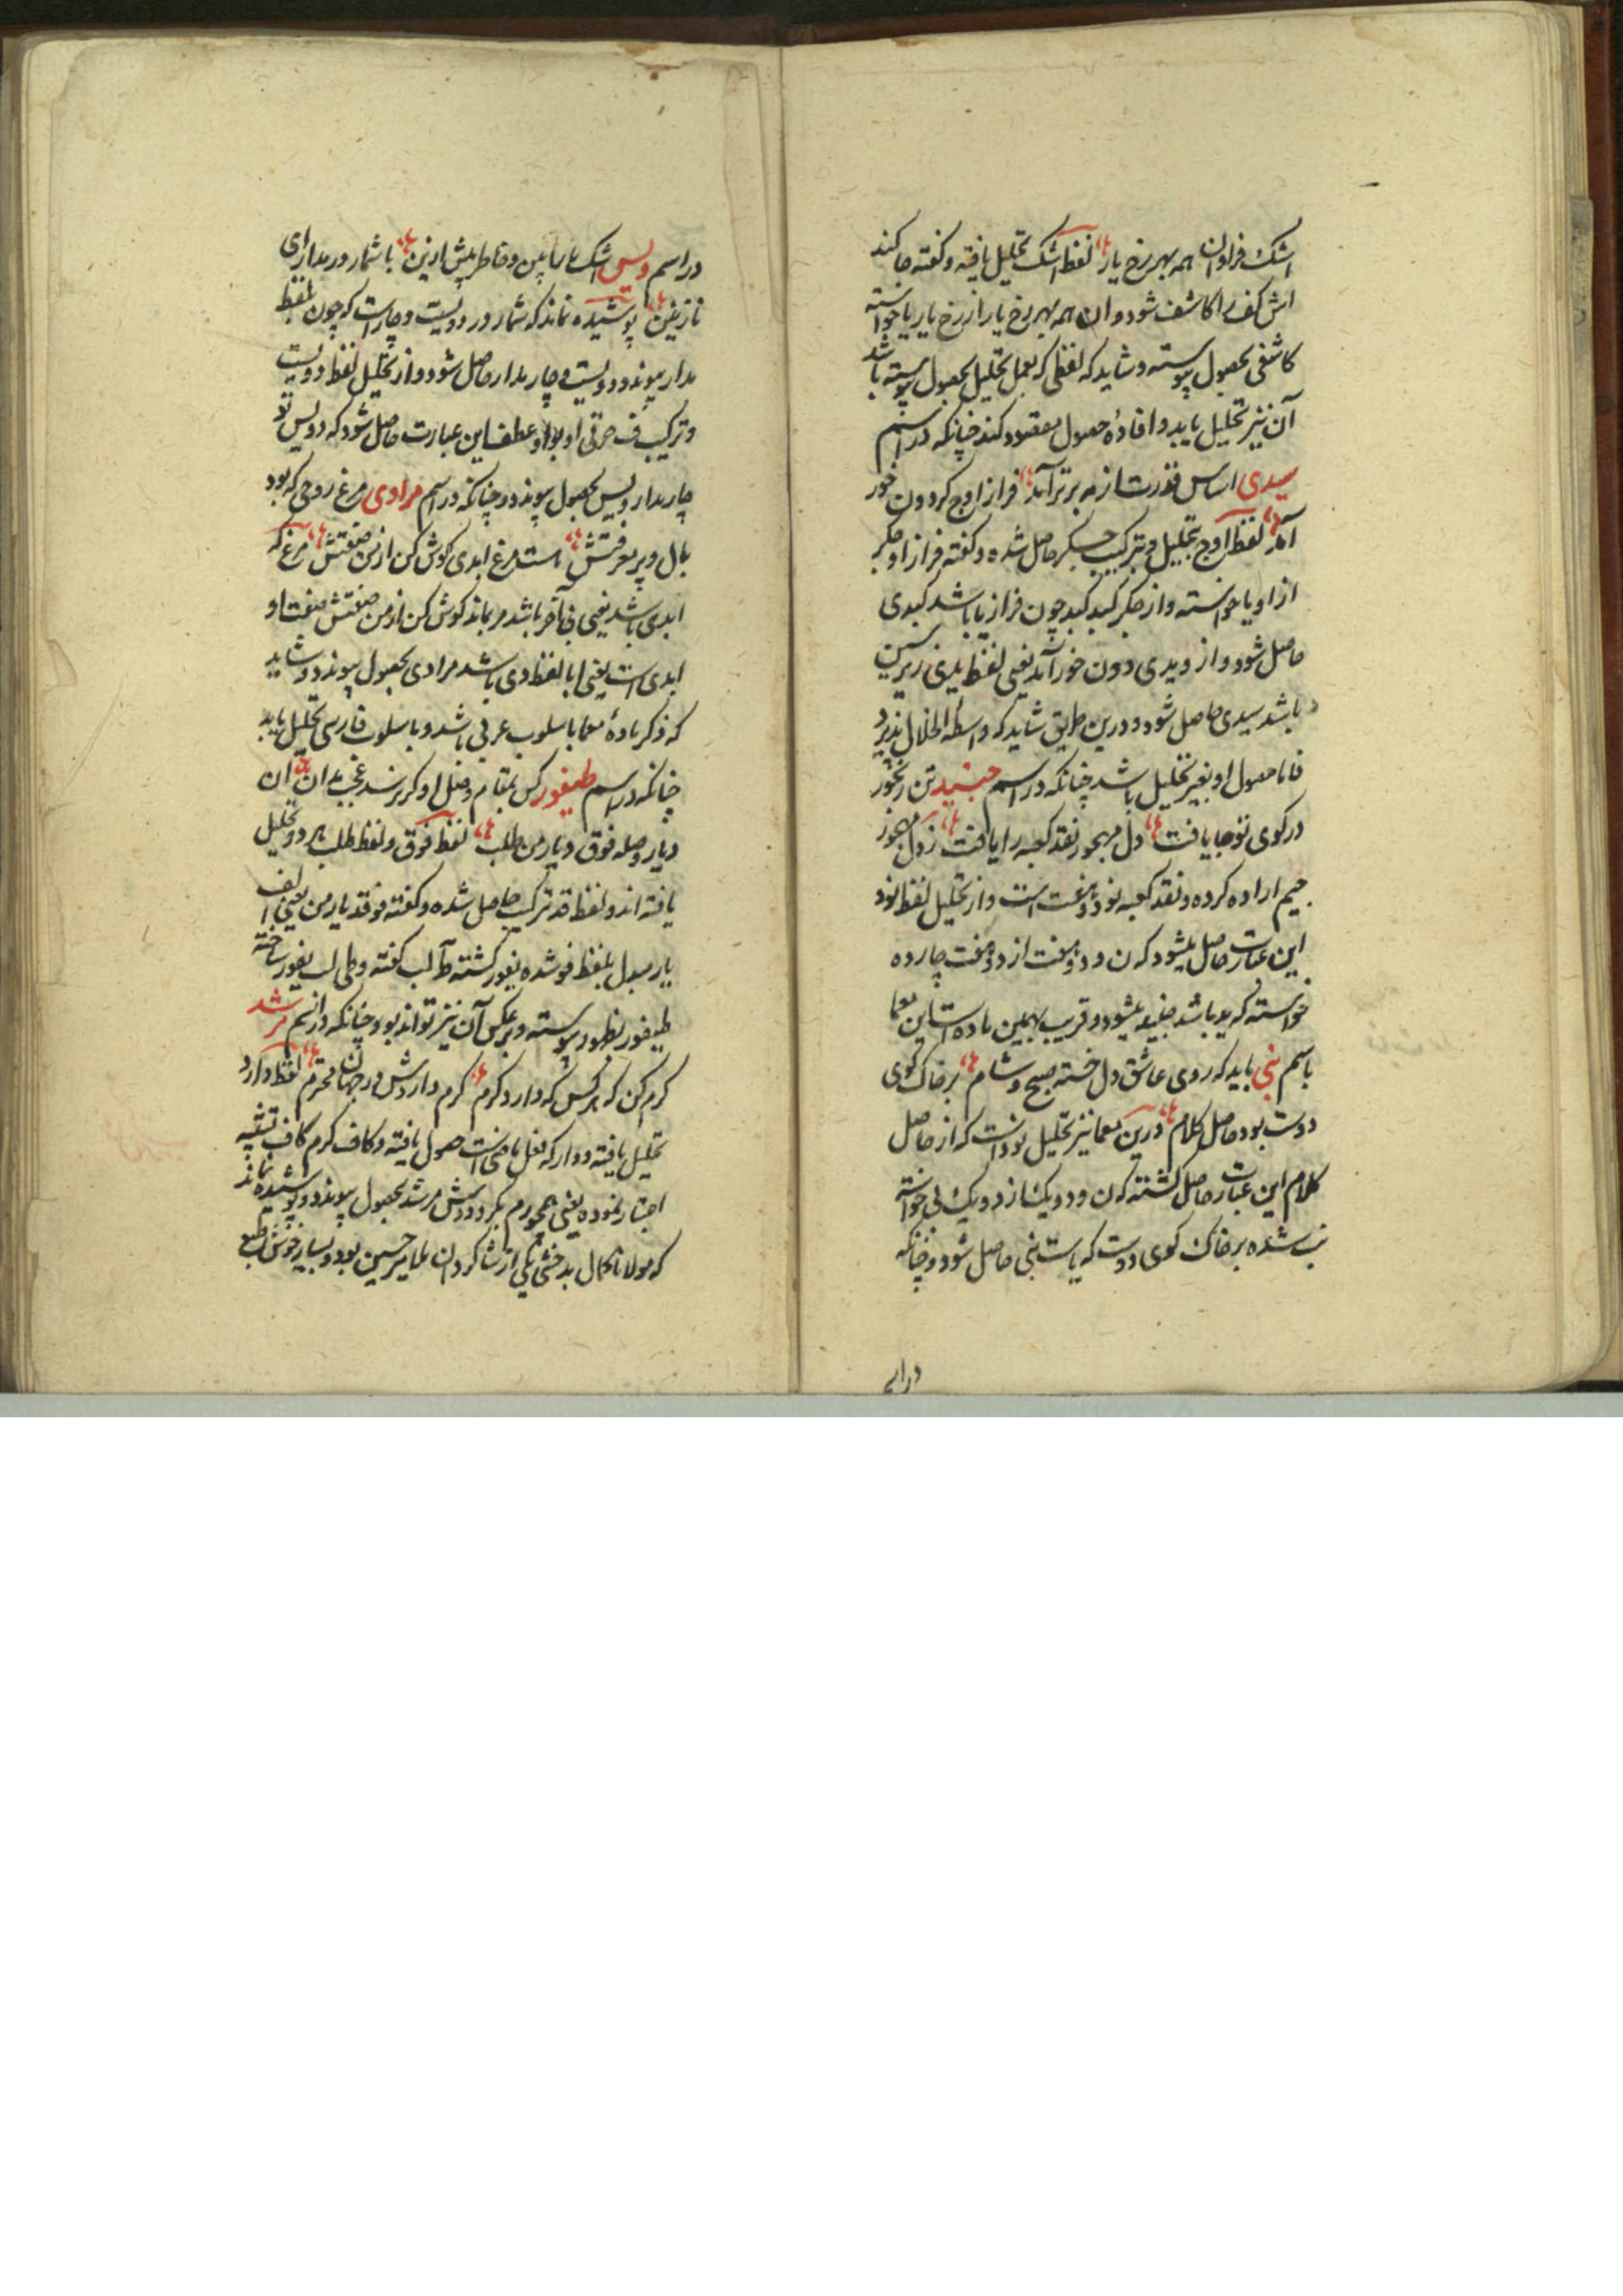 اشک فراوان همه بهر رخ یار لفظ اشک تحلیل یافته و گفته جا کند
اش کف را کاشف شود و ان همه بهر رخ یار از رخ یار یا خواسته
کاشفی بحصول پیوسته و شاید که لفظی که بعمل تحلیل بحصول پیوسته باشد
آن نیز تحلیل یابد و افادهٔ حصول مقصود کند چنانکه در اسم
سیدی اساس قدرت از مه برتر آمد فراز اوج کردون خور
آمد لفظ اوج بتحلیل و بترکیب جکر حاصل شده و کفته فراز او جکر
از او یا خواسته و از جکر کبد کبد چون فراز یا باشد کبدی
حاصل شود و از ویدی دون خور آمد یعنی لفظ یدی زیر سین
باشد سیدی حاصل شود و درین طریق شاید که واسطه انحلال پذیرد
فاما حصول او بغیر تحلیل باشد چنانکه در اسم جنید تن رنجور
در کوی تو جا یافت دل مهجور نقد کعبه را یافت ز دل مهجور
جیم اراده کرده و نقد کعبه نود و هفت است و از تحلیل لفظ نود
این عبارت حاصل میشود که ن و دو هفت از دو هفت چارده
خواسته که ید باشد جنید میشود و قریب بهمین ماده است این معما
باسم نبی باید که روی عاشق دل خسته صبح و شام بر خاک کوی
دوست بود حاصل کلام درین معما نیز تحلیل نود است که از حاصل
کلام این عبارت حاصل کشته که ن و دو یک از دو یک بی خواسته
نب شده بر خاک کوی دوست که یاست نبی حاصل شود و چنانکه
در اسم
در اسم ویس اشک ما را بین و خاطر پیش ازین با شمار در مدارای
نازنین پوشیده نماند که شمار در دویست و چار است که چون بلفظ
مدار پیوندد دویست و چار مدار حاصل شود و از تحلیل لفظ دویست
و ترکیب حرفی او بواو عطف این عبارت حاصل شود که دو یس تو
چار مدار ویس بحصول پیوندد و چنانکه در اسم مرادی مرغ روحی که بود
بال و پر معرفتش هست مرغ ابدی کوش کن از من صفتش مرغ که
ابدی باشد یعنی بی آخر باشد مر بماند کوش کن از من صفتش صفت او
ابدی است یعنی ابا لفظ دی باشد مرادی بحصول پیوندد و شاید
که ذکر مادهٔ معما باسلوب عربی باشد و باسلوب فارسی تحلیل یابد
چنانکه در اسم طیفور کس بمقام وصل او کر نرسد عجب مدان ان
دیار وصله فوق دیار من طلب لفظ فوق و لفظ طلب هر دو تحلیل
یافته اند و لفظ قد ترکیب حاصل شده و کفته فو قد یار من یعنی الف
یار مبدل بلفظ فو شده یفور کشته طا لب کفته و طی لب یفور ساخته
طیفور بظهور پیوسته و بر عکس آن نیز تواند بود چنانکه در اسم مرشد
کرم کن که هر کس که دارد کرم کرم داردش در جهان محترم لفظ دارد
تحلیل یافته و دار که فعل ماضی است حصول یافته و کاف کرم کاف تشبیه
اعتبار نموده یعنی همچو رم بکرد ودش مرشد بحصول پیوندد و پوشیده نماند
که مولانا کمال بدخشی یکی از شاکردان ملا میر حسین بود و بسیار خوش طبع